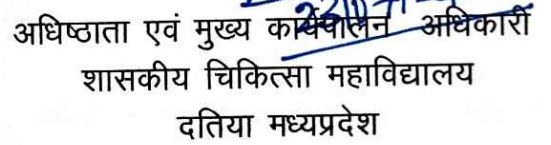 अधिष्ठाता एवं मुख्य कार्यपालन अधिकारी
शासकीय चिकित्सा महाविद्यालय
दतिया मध्यप्रदेश